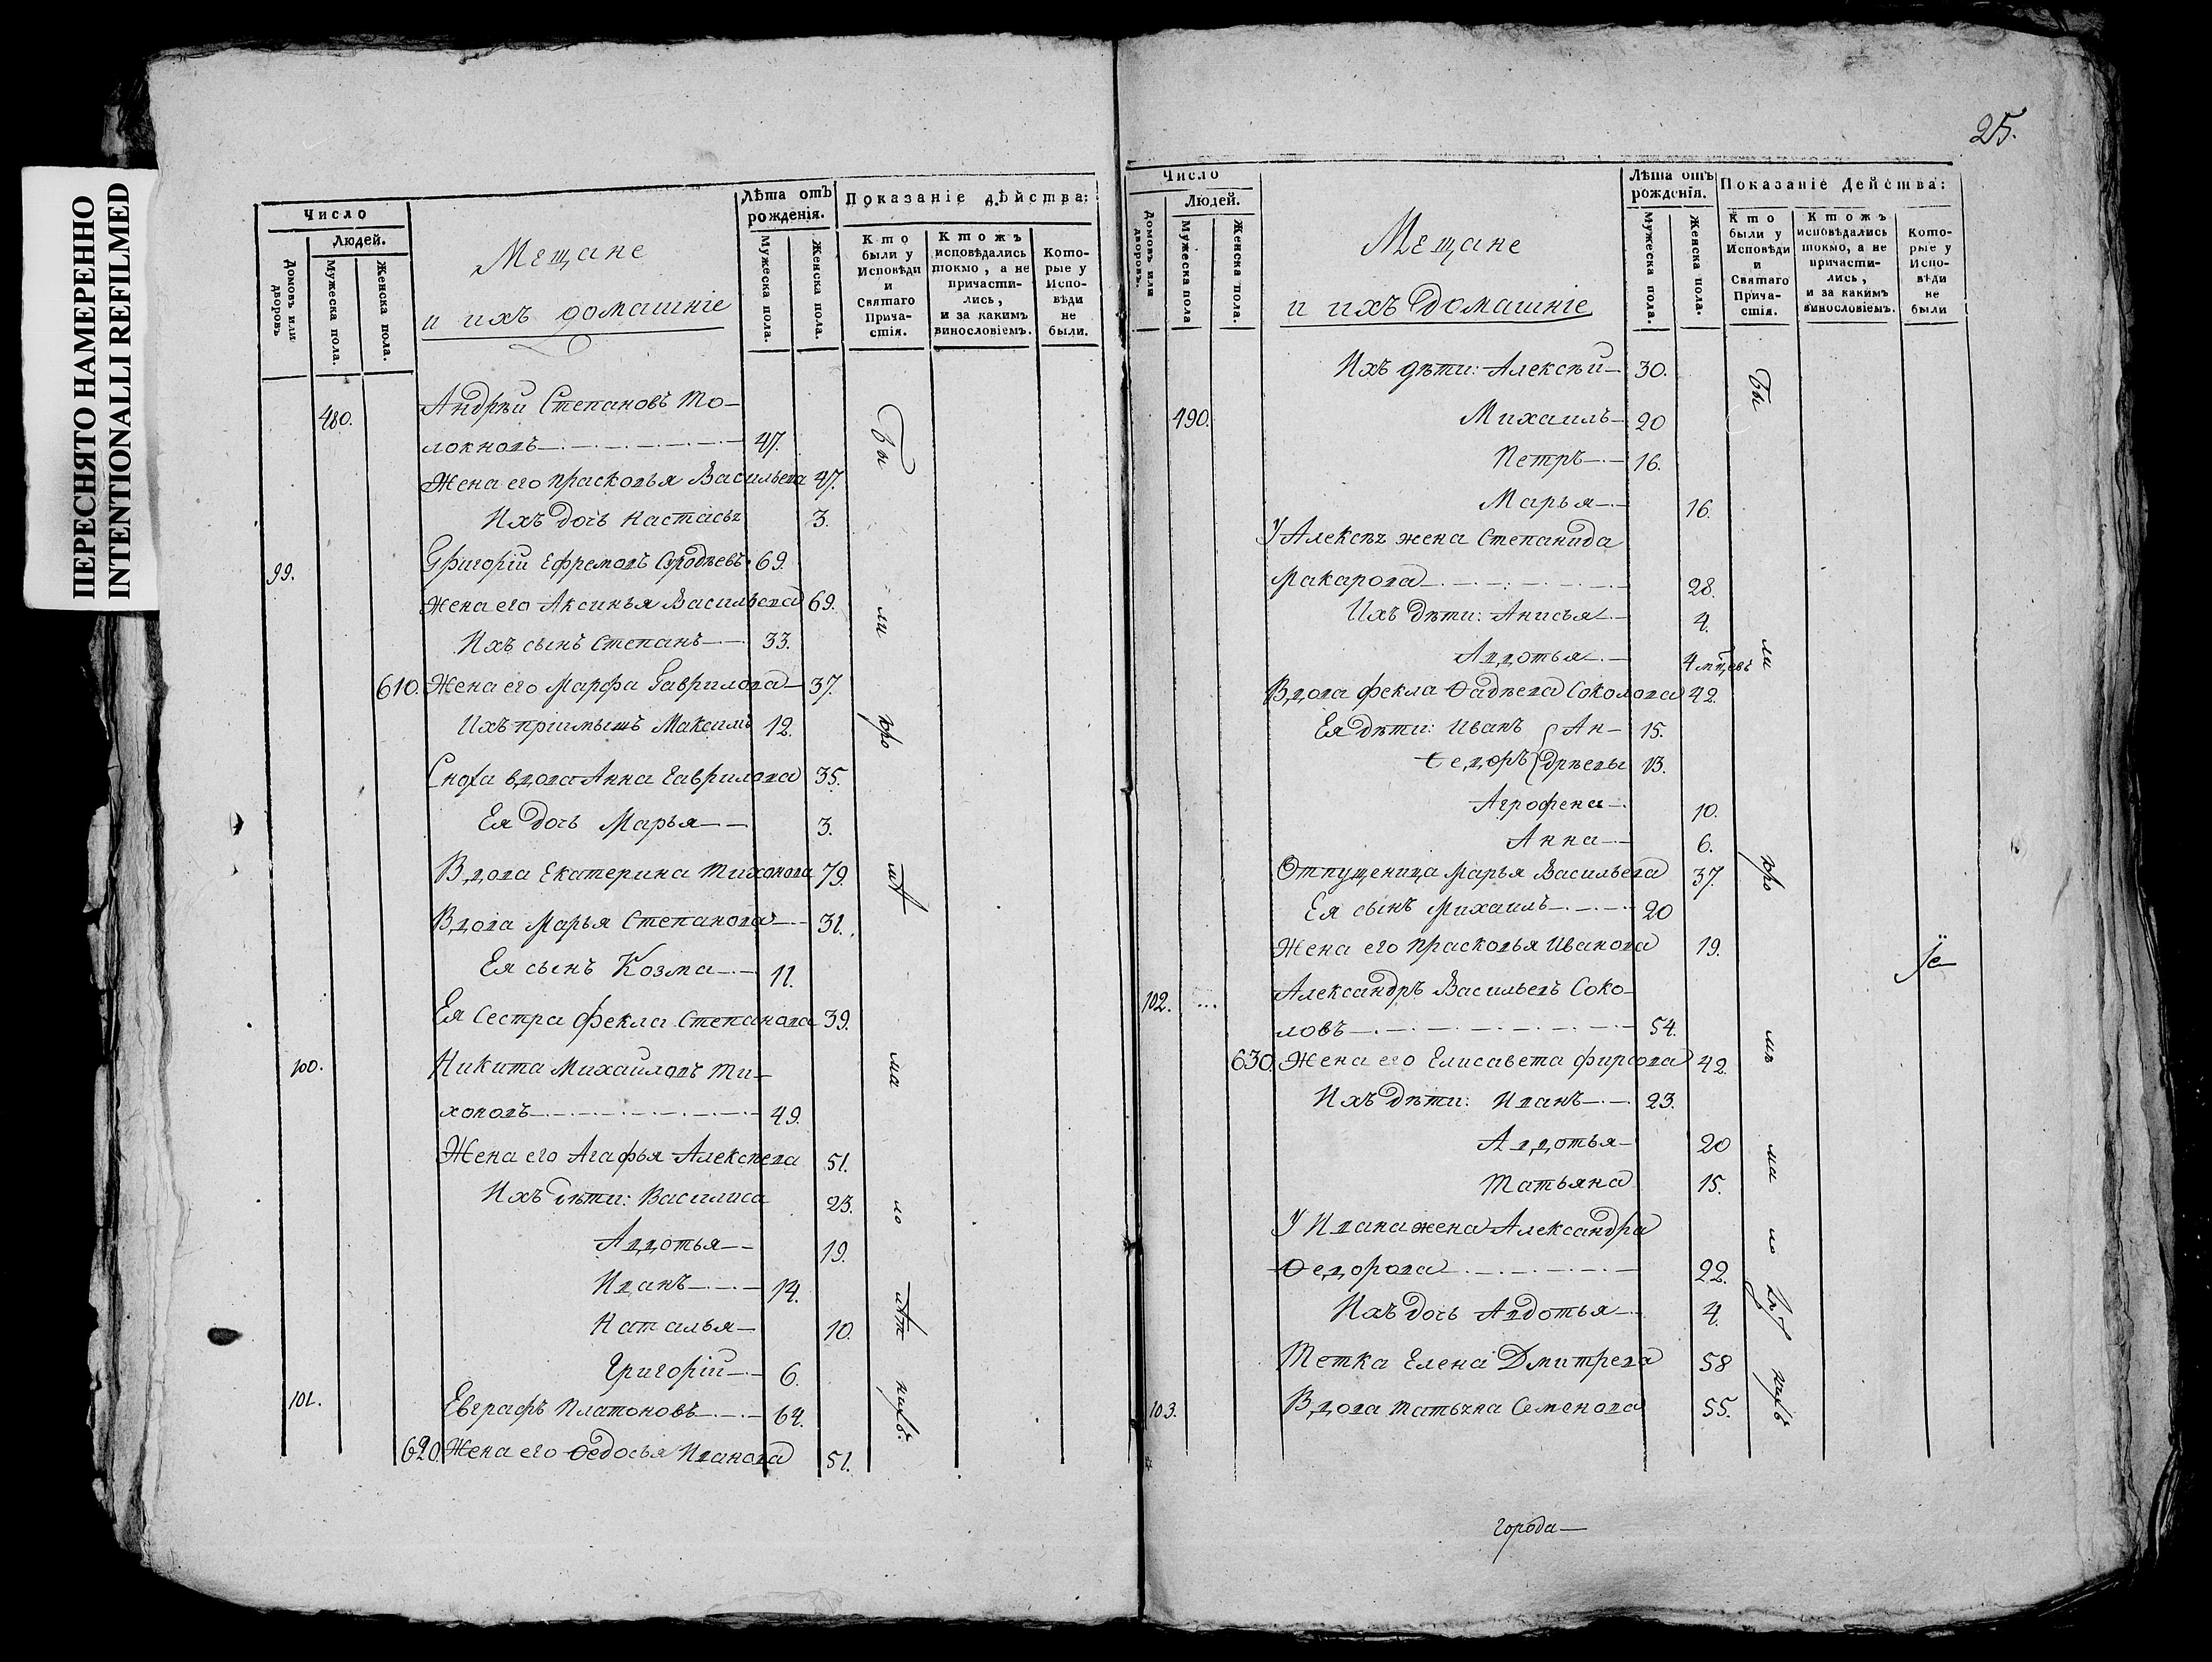 ПЕРЕСНЯТО НАМЕРЕННО
INTENTIONALLI REFILMED
25.
Число
Людей.
Домовъ или дворовъ
Мужеска пола.
Женска пола.
Мещане
и ихъ домашніе
Лѣта отъ рожденія.
Мужеска пола.
Женска пола.
Показаніе дѣйства:
Кто были у Исповѣди и Святаго Причастія.
Ктожъ исповѣдались токмо, а не причастились, и за какимъ винословіемъ.
Которые у Исповѣди не были.
480. Андрѣи Степановъ То-
локновъ 47.
Жена его Прасковья Васильева 47.
Ихъ дочь Настасья 3.
99. Григоріи Ефремовъ 69.
Жена его Аксинья Васильева 69.
Ихъ сынъ Степанъ 33.
610. Жена его Марфа Гаврилова 37.
Ихъ пріимышъ Максимъ 12.
Сноха вдова Анна Гаврилова 35.
Ея дочь Марья 3.
Вдова Екатерина Тихонова 79.
Вдова Марья Степанова 31.
Ея сынъ Козма 11.
Ея сестра Фекла Степанова 39.
100. Никита Михаиловъ Ти-
хоновъ 49.
Жена его Агафья Алексѣева 51.
Ихъ дѣти: Василиса 23.
Авдотья 19.
Иванъ 14.
Наталья 10.
Григоріи 6.
101. Евграфъ Платоновъ 64.
620. Жена его Ѳедосья Иванова 51.
Бы
ли
про
ма
ло
нихъ.
Число
Людей.
Домовъ или дворовъ.
Мужеска пола
Женска пола.
Мещане
и ихъ домашніе
Лѣта отъ рожденія.
Мужеска пола.
Женска пола.
Показаніе Действа:
Кто были у Исповѣди и Святаго Причастія.
Ктожъ исповѣдались токмо, а не причастились, и за какимъ винословіемъ.
Которые у Исповѣди не были
Ихъ дѣти: Алексѣи 30.
490. Михаилъ 20
Петръ 16.
Марья 16.
У Алексѣя жена Степанида
Макарова 28.
Ихъ дѣти: Анисья 4.
Авдотья 4 мцовъ
Вдова Фекла Ѳадѣева Соколова 42.
Ея дѣти: Иванъ Ан- 15.
Ѳедоръ дрѣевы 13.
Агрофена 10.
Анна 6.
Отпущеница Марья Васильева 37.
Ея сынъ Михаилъ 20
Жена его Прасковья Иванова 19.
102. ... Александръ Васильевъ Соко-
ловъ 54.
630. Жена его Елисавета Фирсова 42.
Ихъ дѣти: Иванъ 23.
Авдотья 20
Татьяна 15.
У Ивана жена Александра
Ѳедорова 22.
Ихъ дочь Авдотья 4.
Тетка Елена Дмитрева 58
103. Вдова Татьяна Семенова 55.
Бы
ли
про
мѣ
ма
ло
нихъ
города